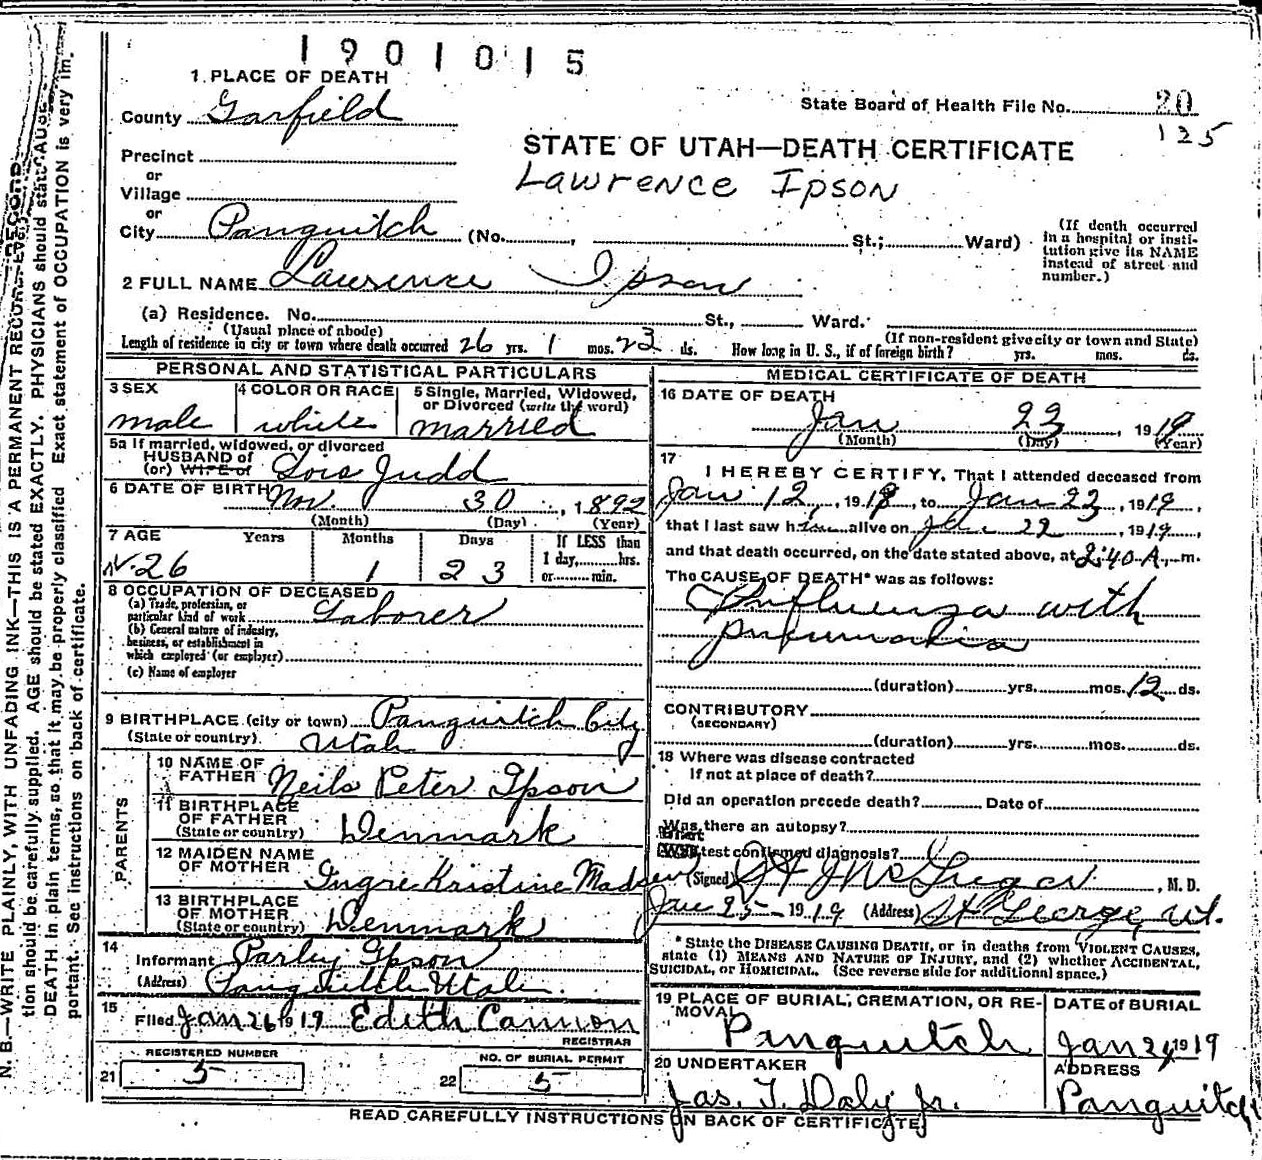 1901015
1 PLACE OF DEATH
County Garfield
State Board of Health File No. 20
125
Precinct
or
Village
or
STATE OF UTAH—DEATH CERTIFICATE
Lawrence Ipson
City Panguitch (No. , St.; Ward)
(If death occurred in a hospital or insti-
tution give its NAME
instead of street and
number.)
2 FULL NAME Lawrence Ipson
(a) Residence. No. St., Ward.
(Usual place of abode) (If non-resident give city or town and State)
Length of residence in city or town where death occurred 26 yrs. 1 mos. 23 ds. How long in U. S., if of foreign birth? yrs. mos. ds.
PERSONAL AND STATISTICAL PARTICULARS
3 SEX
male
4 COLOR OR RACE
white
5 Single, Married, Widowed,
or Divorced (write the word)
married
5a If married, widowed, or divorced
HUSBAND of
(or) WIFE of Lois Judd
6 DATE OF BIRTH Nov. 30, 1892
(Month) (Day) (Year)
7 AGE Years Months Days If LESS than
1 day, hrs.
or min.
26 1 23
8 OCCUPATION OF DECEASED
(a) Trade, profession, or
particular kind of work Laborer
(b) General nature of industry,
business, or establishment in
which employed (or employer)
(c) Name of employer
9 BIRTHPLACE (city or town) Panguitch City
(State or country) Utah
PARENTS
10 NAME OF
FATHER Neils Peter Ipson
11 BIRTHPLACE
OF FATHER
(State or country) Denmark
12 MAIDEN NAME
OF MOTHER Ingre Kristine Madsen
13 BIRTHPLACE
OF MOTHER
(State or country) Denmark
14
Informant Parley Ipson
(Address) Panguitch Utah
15
Filed Jan 26 1919 Edith Cannon
REGISTRAR
REGISTERED NUMBER
21 5
NO. OF BURIAL PERMIT
22 5
MEDICAL CERTIFICATE OF DEATH
16 DATE OF DEATH
Jan 23, 1919
(Month) (Day) (Year)
17
I HEREBY CERTIFY, That I attended deceased from
Jan 12, 1919, to Jan 23, 1919,
that I last saw him alive on Jan 22, 1919,
and that death occurred, on the date stated above, at 2:40 A. m.
The CAUSE OF DEATH* was as follows:
Influenza with
pneumonia
(duration) yrs. mos. 12 ds.
CONTRIBUTORY
(SECONDARY)
(duration) yrs. mos. ds.
18 Where was disease contracted
If not at place of death?
Did an operation precede death? Date of
Was there an autopsy?
What test confirmed diagnosis?
(Signed) McGregor, M. D.
Jan 25 - 1919 (Address) St George, Ut.
* State the DISEASE CAUSING DEATH, or in deaths from VIOLENT CAUSES,
state (1) MEANS AND NATURE OF INJURY, and (2) whether ACCIDENTAL,
SUICIDAL, or HOMICIDAL. (See reverse side for additional space.)
19 PLACE OF BURIAL, CREMATION, OR RE-
MOVAL
Panguitch
DATE of BURIAL
Jan 24 1919
20 UNDERTAKER
Jas. T. Daly Jr.
ADDRESS
Panguitch
READ CAREFULLY INSTRUCTIONS ON BACK OF CERTIFICATE
N. B.—WRITE PLAINLY, WITH UNFADING INK—THIS IS A PERMANENT RECORD.
tion should be carefully supplied. AGE should be stated EXACTLY. PHYSICIANS should state CAUSE
DEATH in plain terms, so that it may be properly classified. Exact statement of OCCUPATION is very im-
portant. See instructions on back of certificate.